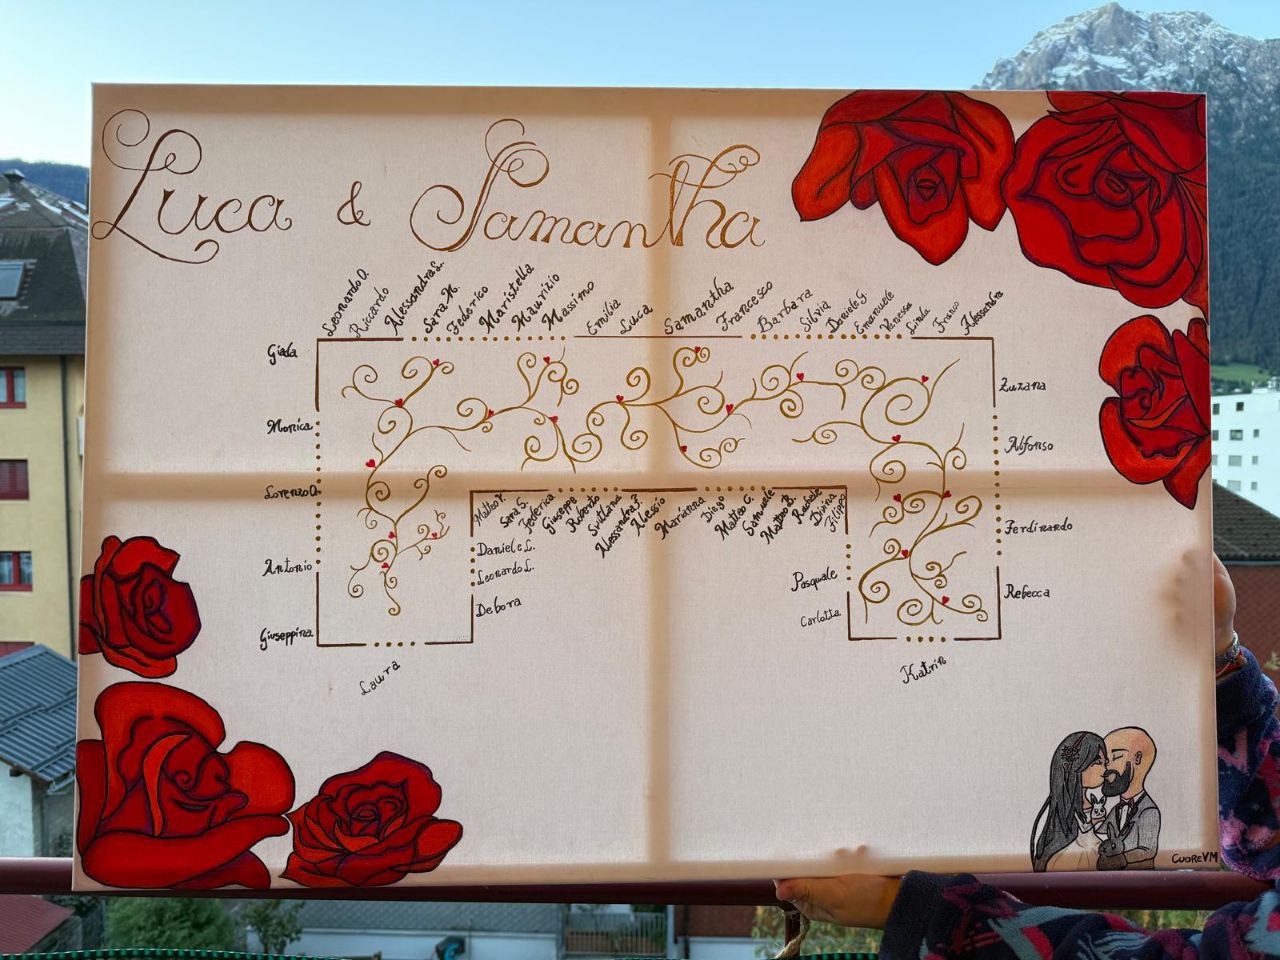 Luca & Samantha
Leonardo O.
Riccardo
Alessandra L.
Sara M.
Federico
Maristella
Maurizio
Massimo
Emilia
Luca
Samantha
Francesco
Barbara
Silvia
Daniele G.
Emanuele
Vanessa
Linda
Franco
Alessandra
Giada
Monica
Lorenzo O.
Antonio
Giuseppina
Laura
Matteo V.
Sara S.
Federica
Giuseppe
Roberto
Svitlana
Alessandra F.
Alessio
Marianna
Diego
Matteo C.
Samuele
Matteo B.
Rachele
Divina
Filippo
Daniele L.
Leonardo L.
Debora
Pasquale
Carlotta
Katrin
Zuzana
Alfonso
Ferdinando
Rebecca
CUOREVM